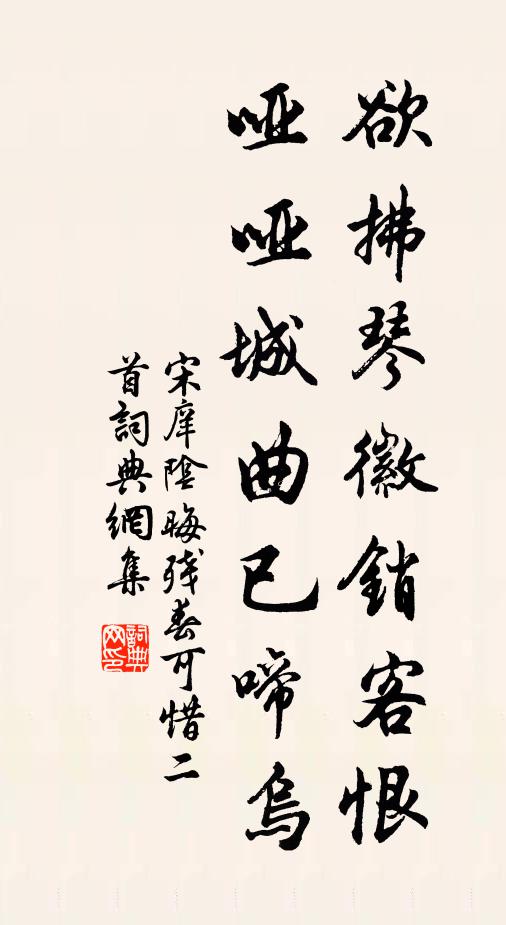 欲拂琴徽銷客恨
啞啞城曲已啼烏
宋庠陰晦残春可惜二
首詞典網集
詞典
网印